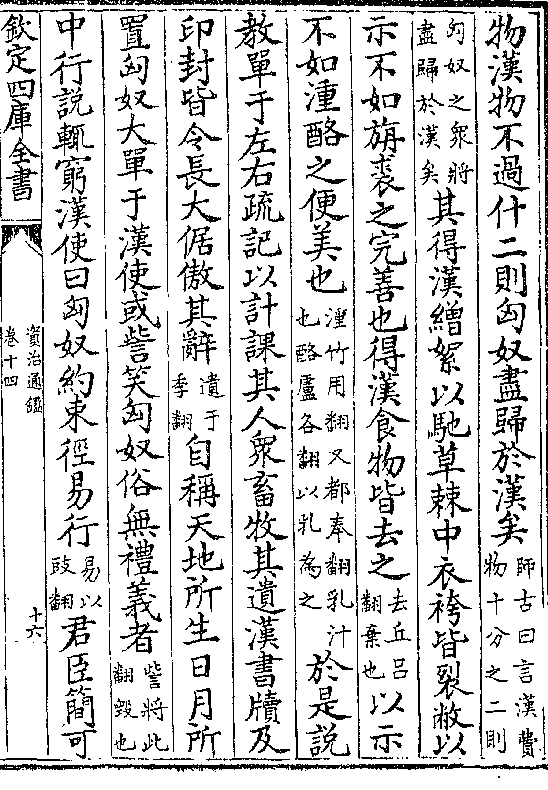 物漢物不過什二則匈奴盡歸於漢矣師古曰言漢費物十分之二則
匈奴之衆將盡歸於漢矣其得漢繒絮以馳草棘中衣袴皆裂敝以
示不如旃裘之完善也得漢食物皆去之去丘吕翻棄也以示
不如湩酪之便美也湩竹用翻又都奉翻乳汁也酪盧各翻以乳為之於是說
教單于左右疏記以計課其人衆畜牧其遺漢書牘及
印封皆令長大倨傲其辭遺于季翻自稱天地所生日月所
置匈奴大單于漢使或訾笑匈奴俗無禮義者訾將此翻毀也
中行說輒窮漢使曰匈奴約束徑易行易以豉翻君臣簡可
欽定四庫全書
資治通鑑
卷十四
十六